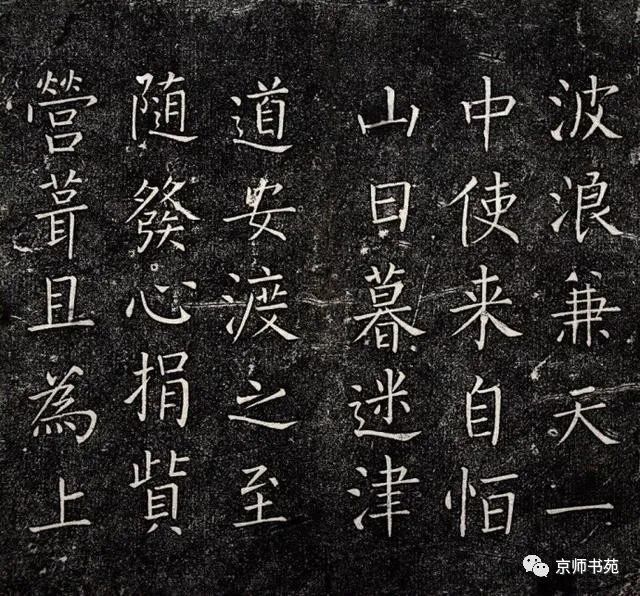 波浪兼天一
中使来自恒
山日暮迷津
道安渡之至
随發心捐貲
營葺且為上
京师书苑